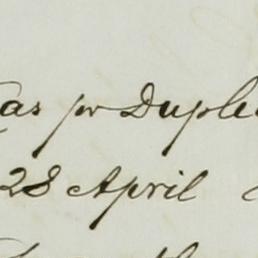 as pr Duple
28 April